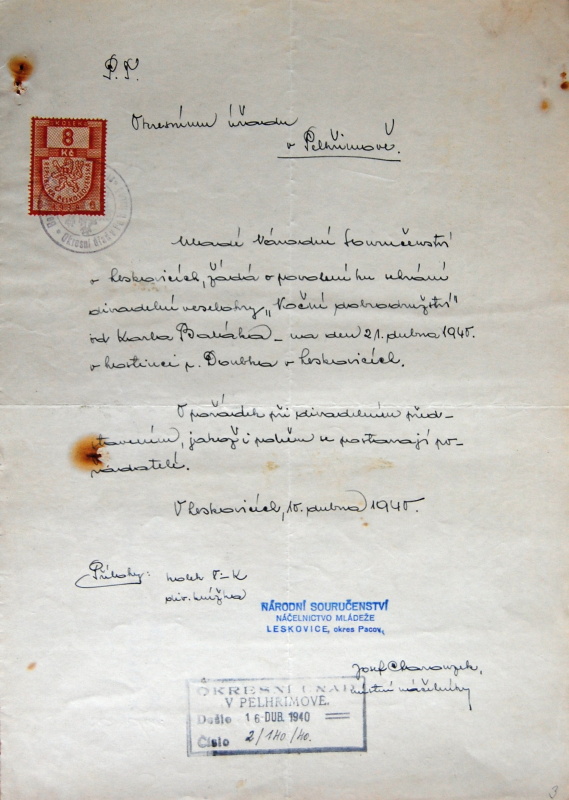 P. T.
Okresnímu úřadu
v Pelhřimově.
KOLEK
8
Kč
REPUBLIKA ČESKOSLOVENSKÁ
Mladé Národní Souručenství
v Leskovicích, žádá o povolení ku hraní
divadelní veselohry „Noční dobrodružství"
od Karla Baláka – na den 21. dubna 1940.
v hostinci p. Doubka v Leskovicích.
O pořádek při divadelním před-
stavením, jakož i po něm se postarají po-
řadatelé.
V Leskovicích, 15. dubna 1940.
Přílohy: kolek 8 – K
div. knížka
NÁRODNÍ SOURUČENSTVÍ
NÁČELNICTVO MLÁDEŽE
LESKOVICE, okres Pacov,
Josef
místní náčelníky
OKRESNÍ ÚŘAD
V PELHŘIMOVĚ.
Došlo 16. DUB. 1940
Číslo 2/140/40.
3